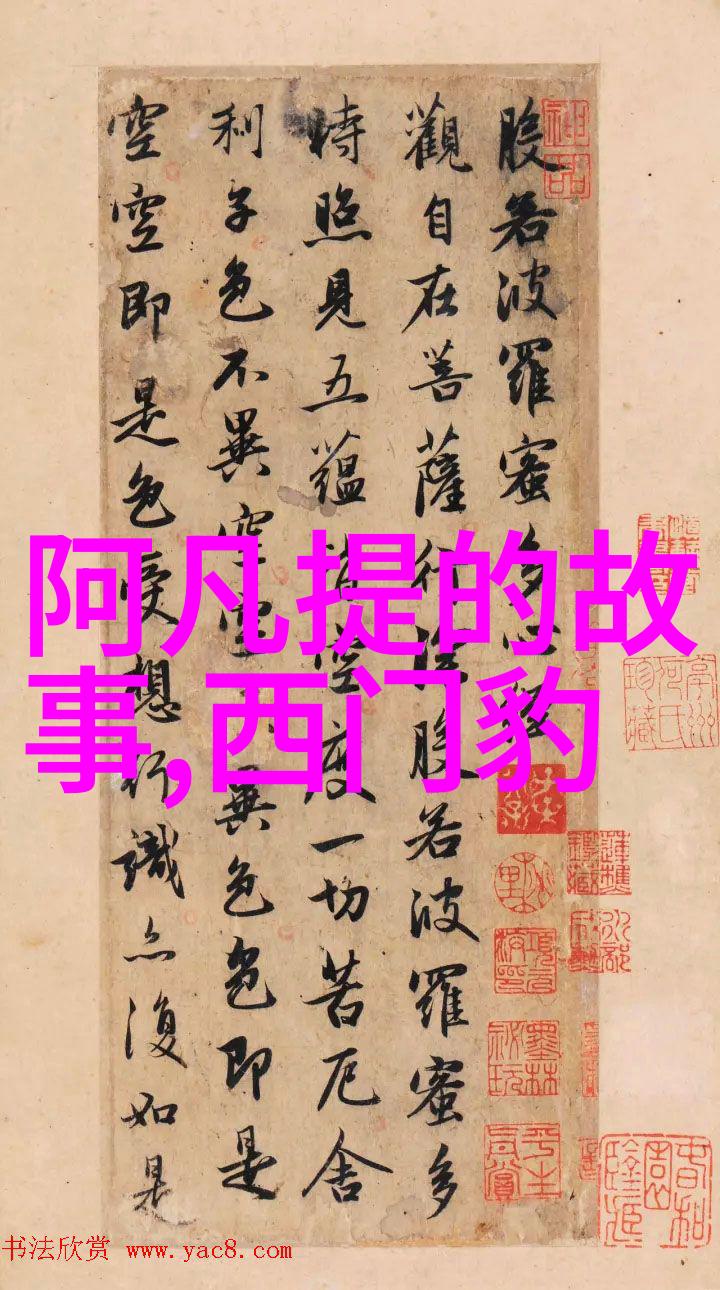 般若波羅蜜多心經
觀自在菩薩行深般若波羅蜜多
時照見五蘊皆空度一切苦厄舍
利子色不異空空異色色即是
空空即是色受想行識亦復如是
阿凡提的故
事,西门豹
书法欣赏 www.yac8.com